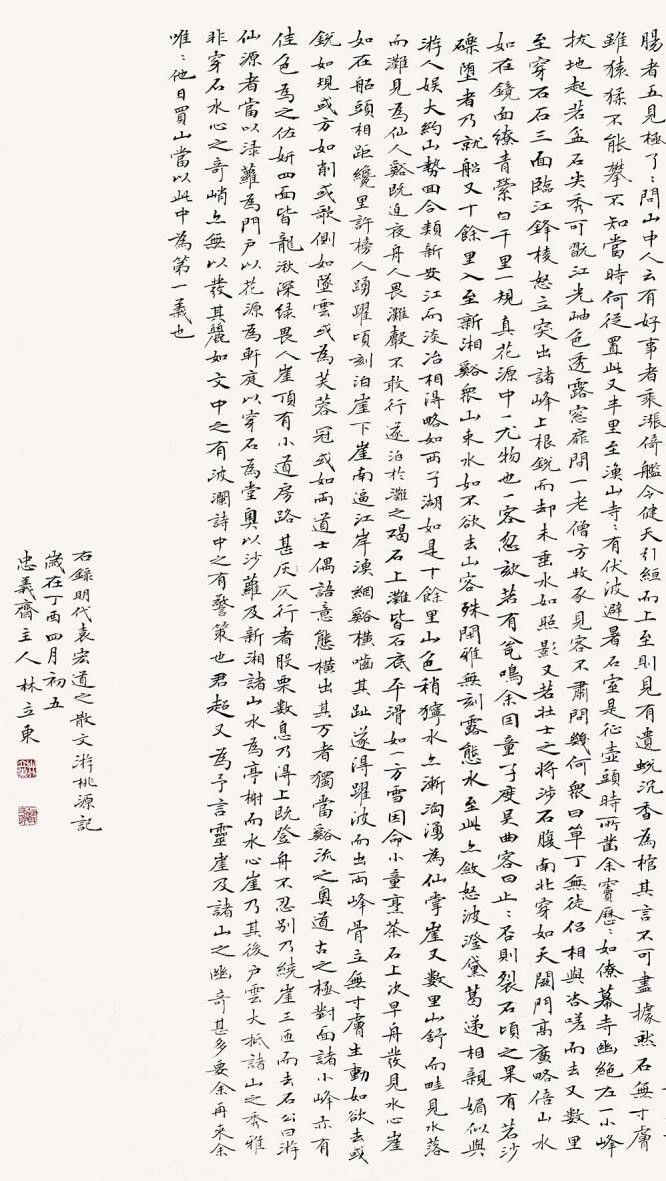 腸者五見極了〻問山中人云有好事者乘漲倚艦令健夫引絙而上至則見有遺蛻沉香為棺其言不可盡據然石無寸膚
雖猿猱不能攀不知當時何從置此又半里至漁山寺〻有伏波避暑石室是征壺頭時所鑿余竇歷〻如僚幕寺幽絕左一小峰
拔地起若盆石尖秀可翫江光岫色透露窓扉間一老僧方牧豕見客不肅問幾何眾曰單丁無徒侣相與咨嗟而去又數里
至穿石石三面臨江鋒棱怒立突出諸峰上根銳而却末垂水如照影又若壮士之將涉石腹南北穿如天闕門高廣略倍山水
如在鏡面繚青縈白千里一規真花源中一尤物也一客忽欬若有瓮鳴余因童子度吴曲客曰止〻否則裂石頃之果有若沙
礫堕者乃就船又十餘里入至新湘谿眾山束水如不欲去山容殊閒雅無刻露態水至此亦斂怒波澄黛蓄遞相親媚似與
游人娱大約山勢回合類新安江而淡冶相得略如西子湖如是十餘里山色稍獰水亦漸洶湧為仙掌崖又數里山舒而畦見水落
而灘見為仙人谿既迫夜舟人畏灘聲不敢行遂泊於灘之碣石上灘皆石底平滑如一方雪因命小童烹茶石上次早舟發見水心崖
如在船頭相距纔里許榜人踴躍頃刻泊崖下崖南逼江岸漁網谿横嚙其趾遂得躍波而出兩峰骨立無寸膚生動如欲去或
銳如規或方如削或欹側如墜雲或為芙蓉冠或如兩道士偶語意態横出其方者獨當谿流之奥遒古之極對面諸小峰亦有
佳色為之佐妍四面皆龍湫深绿畏人崖頂有小道房路甚仄仄行者股栗數息乃得上既登舟不忍别乃繞崖三匝而去石公曰游
仙源者當以渌蘿為門户以花源為軒庭以穿石為堂奥以沙蘿及新湘諸山水為亭榭而水心崖乃其後户雲大抵諸山之秀雅
非穿石水心之奇峭亦無以發其麗如文中之有波瀾詩中之有警策也君超又為予言靈崖及諸山之幽奇甚多要余再來余
唯〻他日買山當以此中為第一義也
右録明代袁宏道之散文游桃源記
歲在丁酉四月初五
忠義齋主人林立東